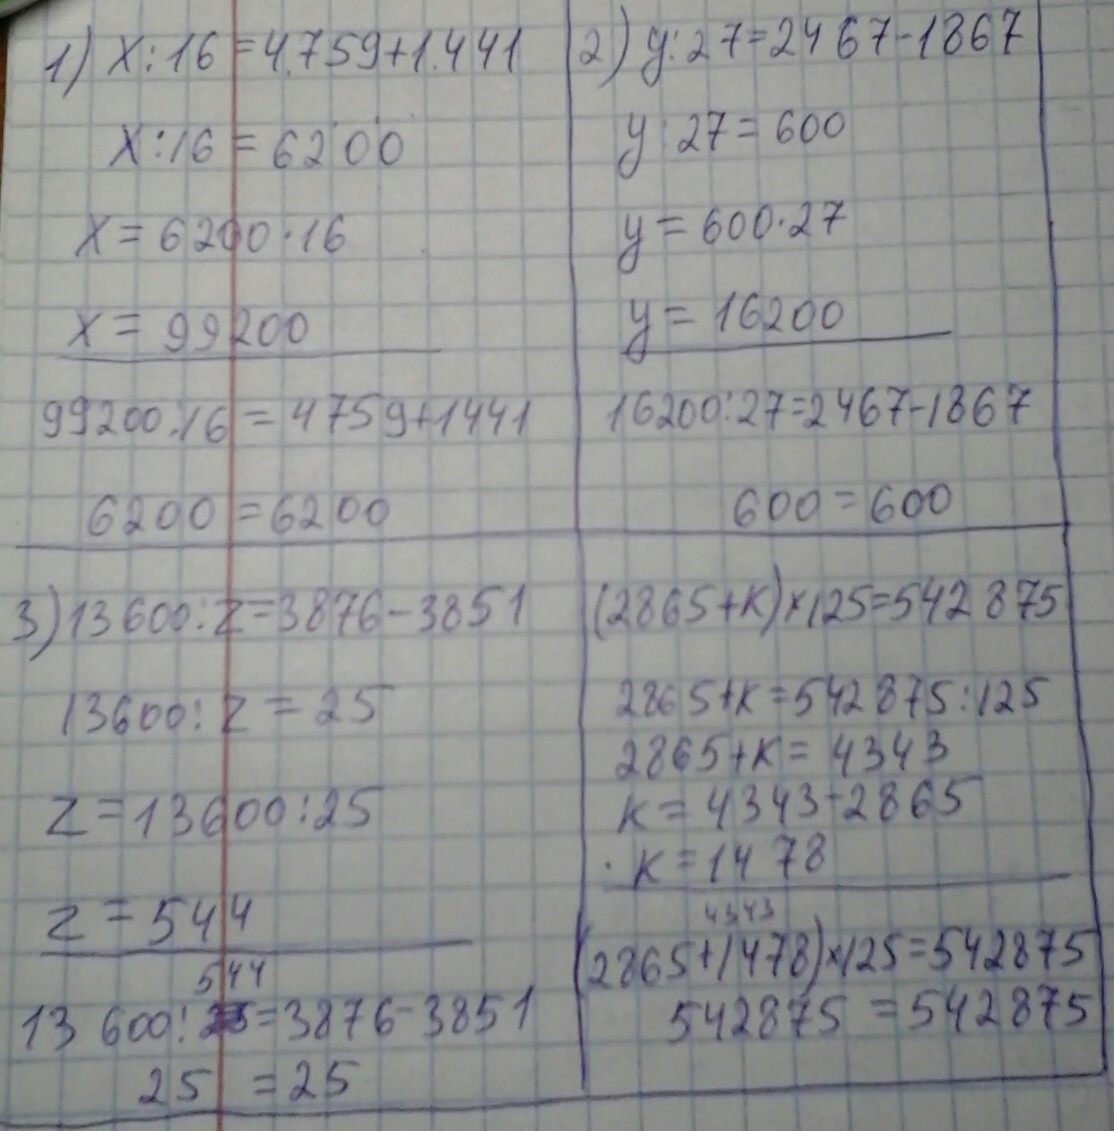 1) x:16=4.759+1.441
x:16=6200
x=6200·16
x=99200
99200:16=4759+1441
6200=6200
2) y:27=2467-1867
y:27=600
y=600·27
y=16200
16200:27=2467-1867
600=600
3) 13600:z=3876-3851
13600:z=25
z=13600:25
z=544
544
13 600:=3876-3851
25=25
(2865+k)×125=542 875
2865+k=542 875:125
2865+k=4343
k=4343-2865
k=1478
4343
(2865+1478)×125=542875
542875=542875